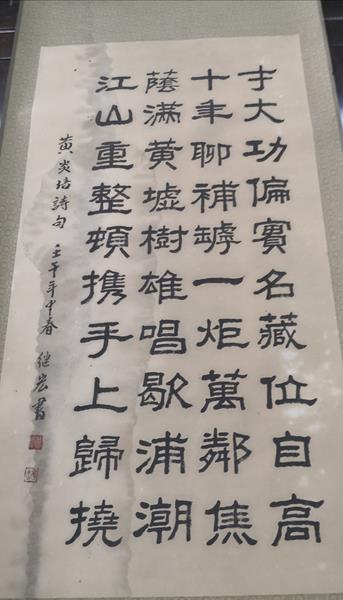 才大功偏實名藏位自高
十年聊補罅一炬萬鄰焦
蔭滿黃墟樹雄唱歇浦潮
江山重整頓携手上歸撓
黃炎培詩句 壬午年中春 继宏書